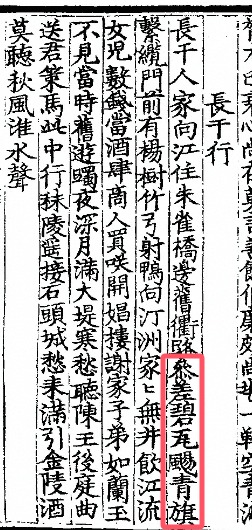 長干行
長干人家向江住朱雀橋邊舊衢路叅差碧瓦颺青旗
繫纜門前有楊樹竹弓射鴨向汀洲家〻無井飲江流
女兒數錢當酒肆商人買咲開娼樓謝家子弟如蘭玉
不見當時舊遊躅夜深月滿大堤寒愁聽陳王後庭曲
送君策馬此中行秣陵遥接石頭城愁来滿引金陵酒
莫聽秋風淮水聲